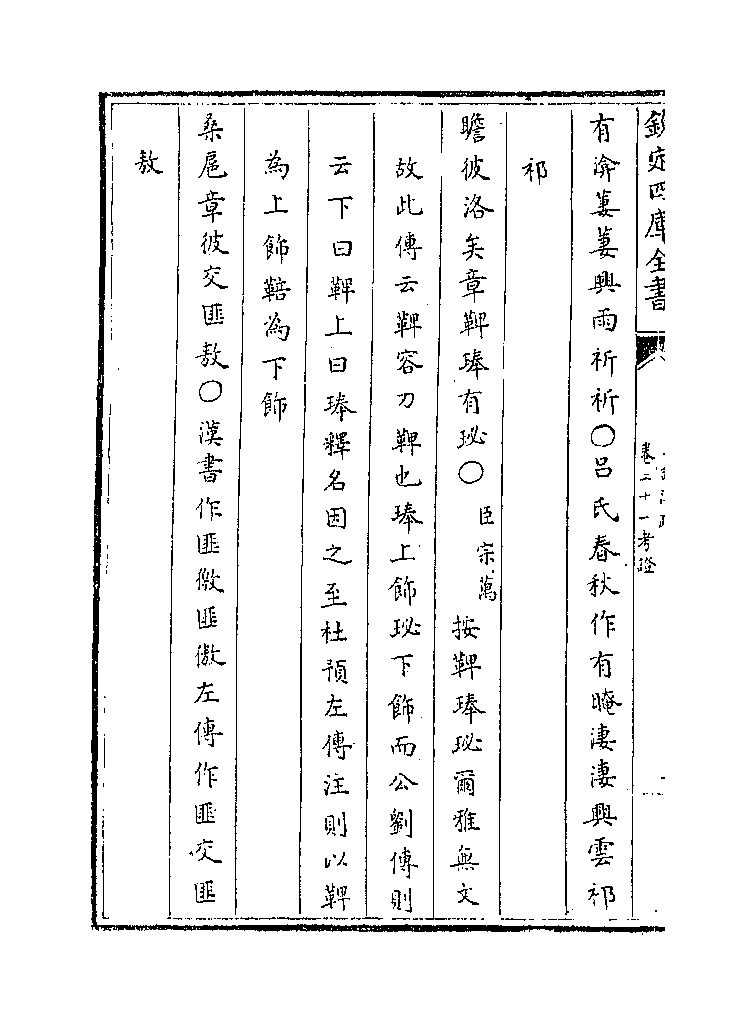 欽定四庫全書
卷二十一考證
有渰萋萋興雨祈祈〇呂氏春秋作有晻淒淒興雲祁
祁
瞻彼洛矣章鞞琫有珌〇臣宗萬按鞞琫珌爾雅無文
故此傳云鞞容刀鞞也琫上飾珌下飾而公劉傳則
云下曰鞞上曰琫釋名因之至杜預左傳注則以鞞
為上飾鞛為下飾
桑扈章彼交匪敖〇漢書作匪儌匪傲左傳作匪交匪
敖